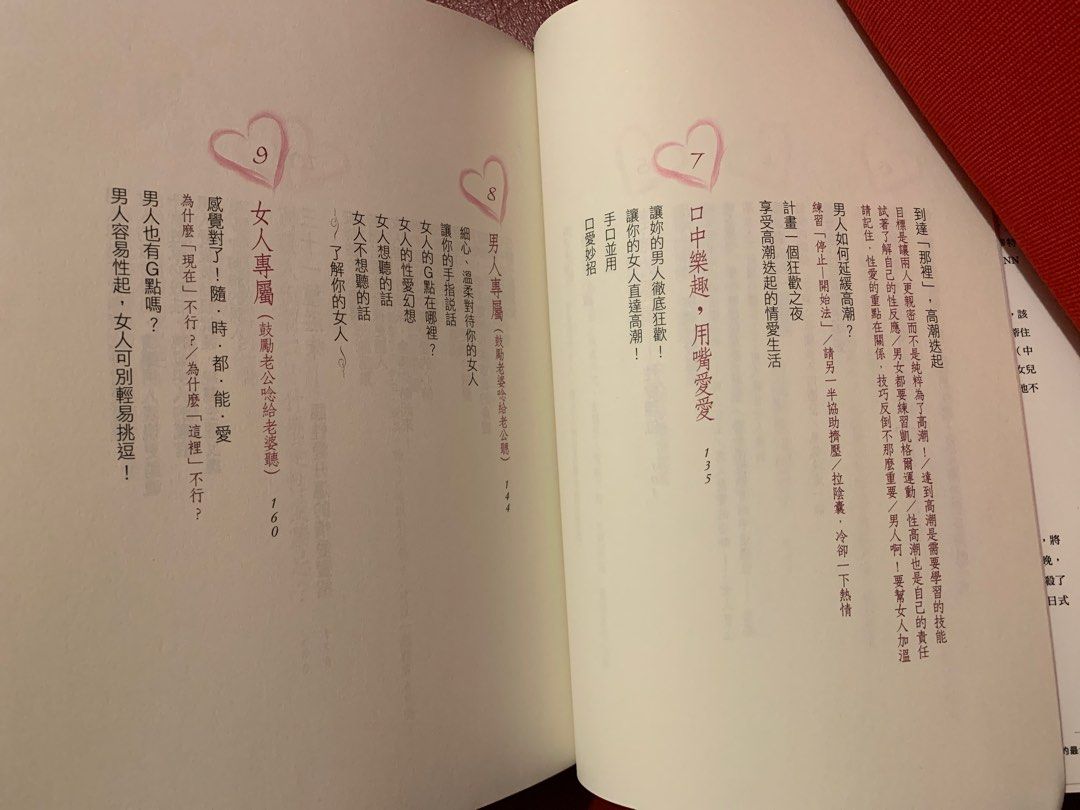 到達「那裡」，高潮迭起
目標是讓兩人更親密而不是純粹為了高潮！／達到高潮是需要學習的技能
試著了解自己的性反應／男女都要練習凱格爾運動／性高潮也是自己的責任
請記住，性愛的重點在關係，技巧反倒不那麼重要／男人啊！要幫女人加溫
男人如何延緩高潮？
練習「停止—開始法」／請另一半協助擠壓／拉陰囊，冷卻一下熱情
計畫一個狂歡之夜
享受高潮迭起的情愛生活
7
口中樂趣，用嘴愛愛 135
讓妳的男人徹底狂歡！
讓你的女人直達高潮！
手口並用
口愛妙招
8
男人專屬（鼓勵老婆唸給老公聽） 144
細心、溫柔對待你的女人
讓你的手指說話
女人的G點在哪裡？
女人的性愛幻想
女人想聽的話
女人不想聽的話
了解你的女人
9
女人專屬（鼓勵老公唸給老婆聽） 160
感覺對了！隨・時・都・能・愛
為什麼「現在」不行？／為什麼「這裡」不行？
男人也有G點嗎？
男人容易性起，女人可別輕易挑逗！
NN
，該
（中
，將
晚，
殺了
日式
的最